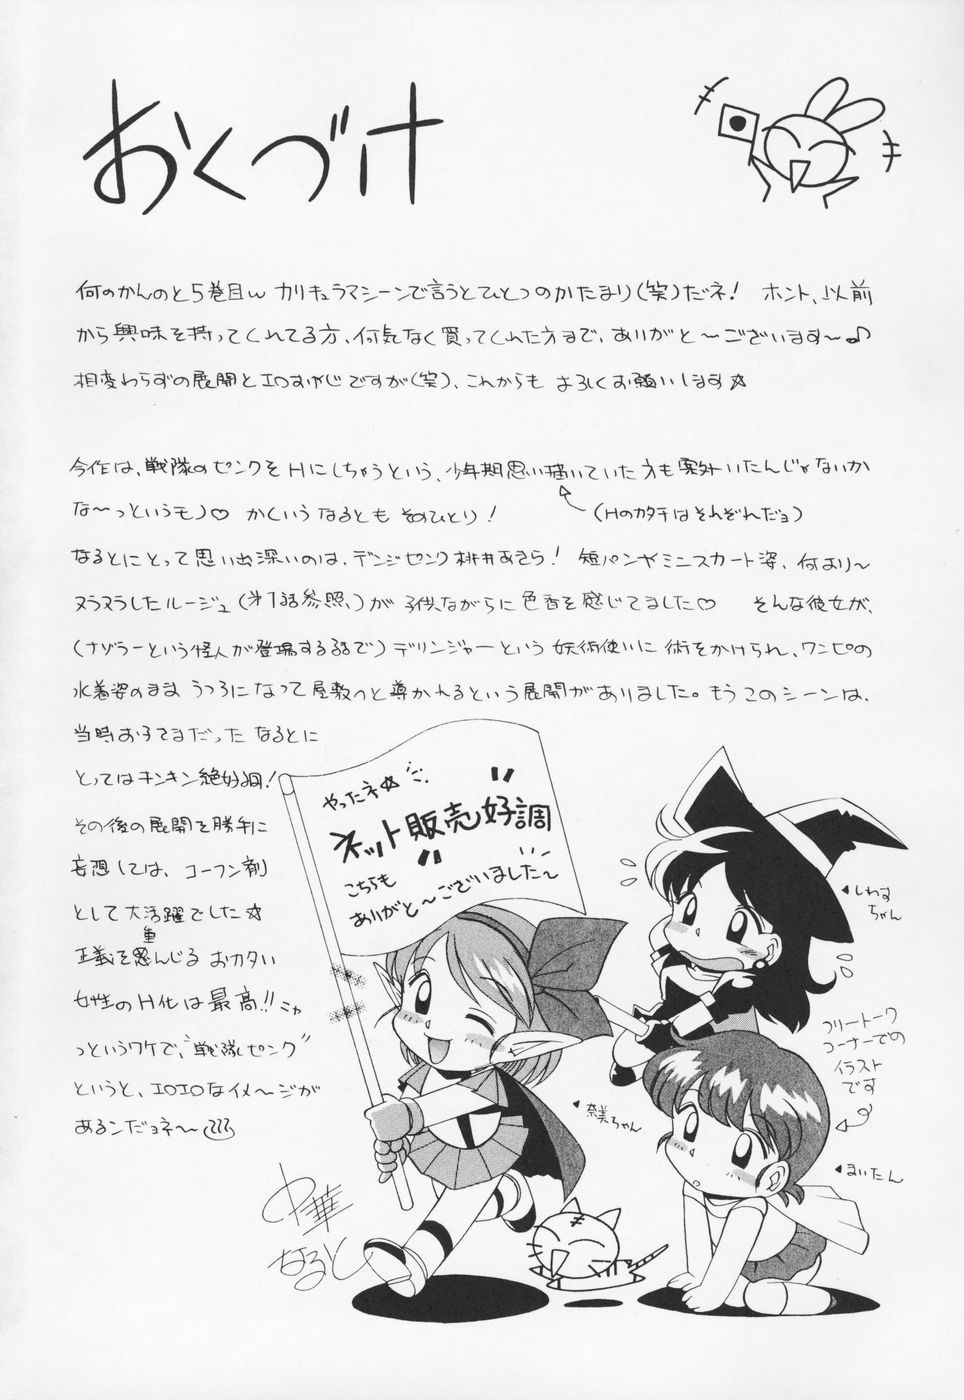 おくづけ
何のかんのと5巻目w カリキュラマシーンで言うとひとつのかたまり(笑)だネ! ホント、以前
から興味を持ってくれてる方、何気なく買ってくれた方まで、ありがと〜ございます〜♪
相変わらずの展開とエロオヤジですが(笑)、これからも よろしくお願いします☆
今作は、戦隊のピンクをHにしちゃうという、少年期思い描いていた方も案外いたんじゃないか
な〜っというモノ♡ かくいうなるとも そのひとり!
(Hのカタチはそれぞれだョ)
なるとにとって思い出深いのは、デンジピンク 桃井あきら! 短パンやミニスカート姿、何より〜
ヌラヌラしたルージュ(第1話参照、)が 子供ながらに 色香を感じてました♡ そんな彼女が、
(ナゾラーという怪人が登場する話で)デリンジャーという 妖術使いに 術をかけられ、ワンピの
水着姿のまま うつろになって 屋敷へと 導かれるという 展開がありました。もう このシーンは、
当時お子さまだった なるとに
とってはギンギン絶好調!
その後の展開を勝手に
妄想しては、コーフン剤
として大活躍でした☆
正義を重んじる おカタい
女性のH化は最高!!ニャ
っというワケで、"戦隊ピンク"
というと、エロエロなイメ〜ジが
あるンだョネ〜
やったネ☆
"ネット販売好調"
こちらも
ありがと〜ございました〜
しわす
ちゃん
フリートーク
コーナーでの
イラスト
です
奈美ちゃん
まいたん
中華
なると